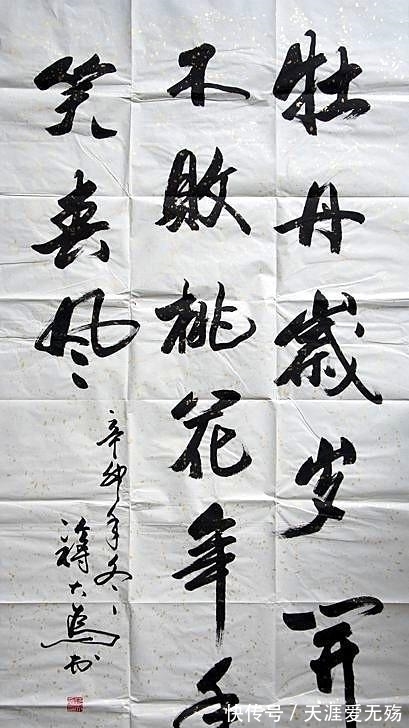 牡丹歲岁开
不敗桃花年年
笑春风
辛卯年冬
快传号 / 天涯爱无殇